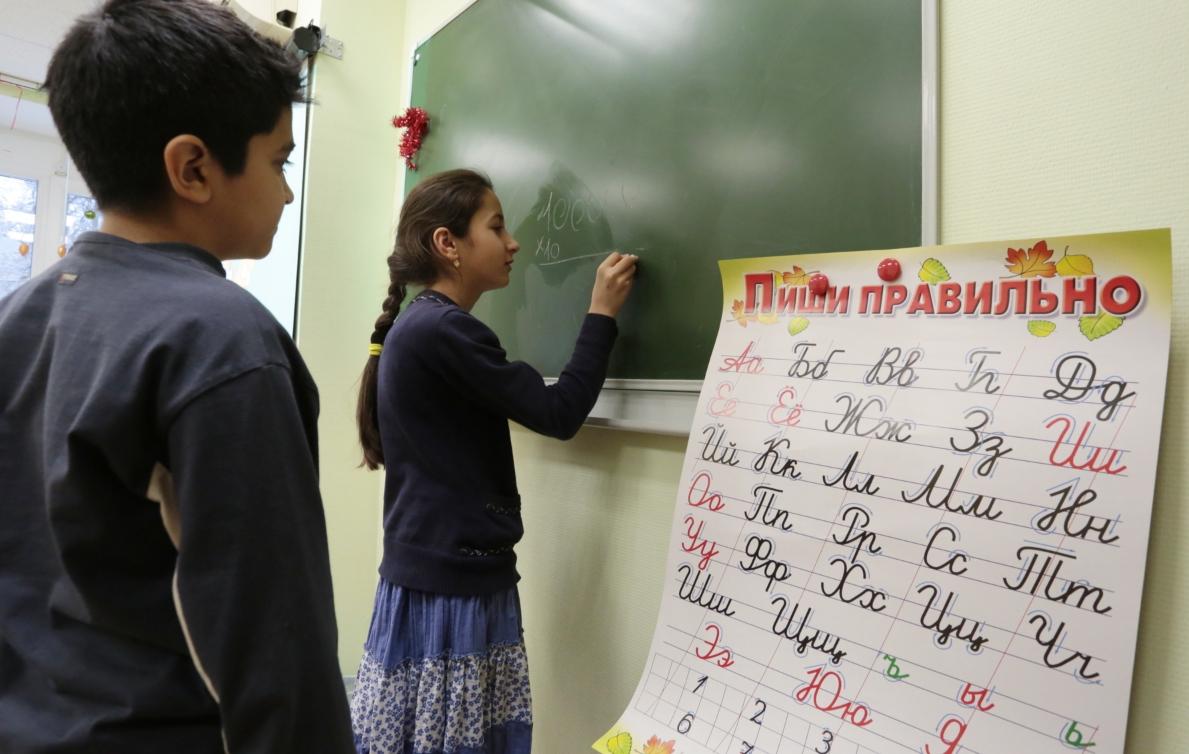 1000
×10
Пиши правильно
Аа Бб Вв Гг Дд
Ее Ёё Жж Зз Ии
Йй Кк Лл Мм Нн
Оо Пп Рр Сс Тт
Уу Фф Хх Цц Чч
Шш Щщ ъ ы ь
Ээ Юю Я
1 2 3
6 7